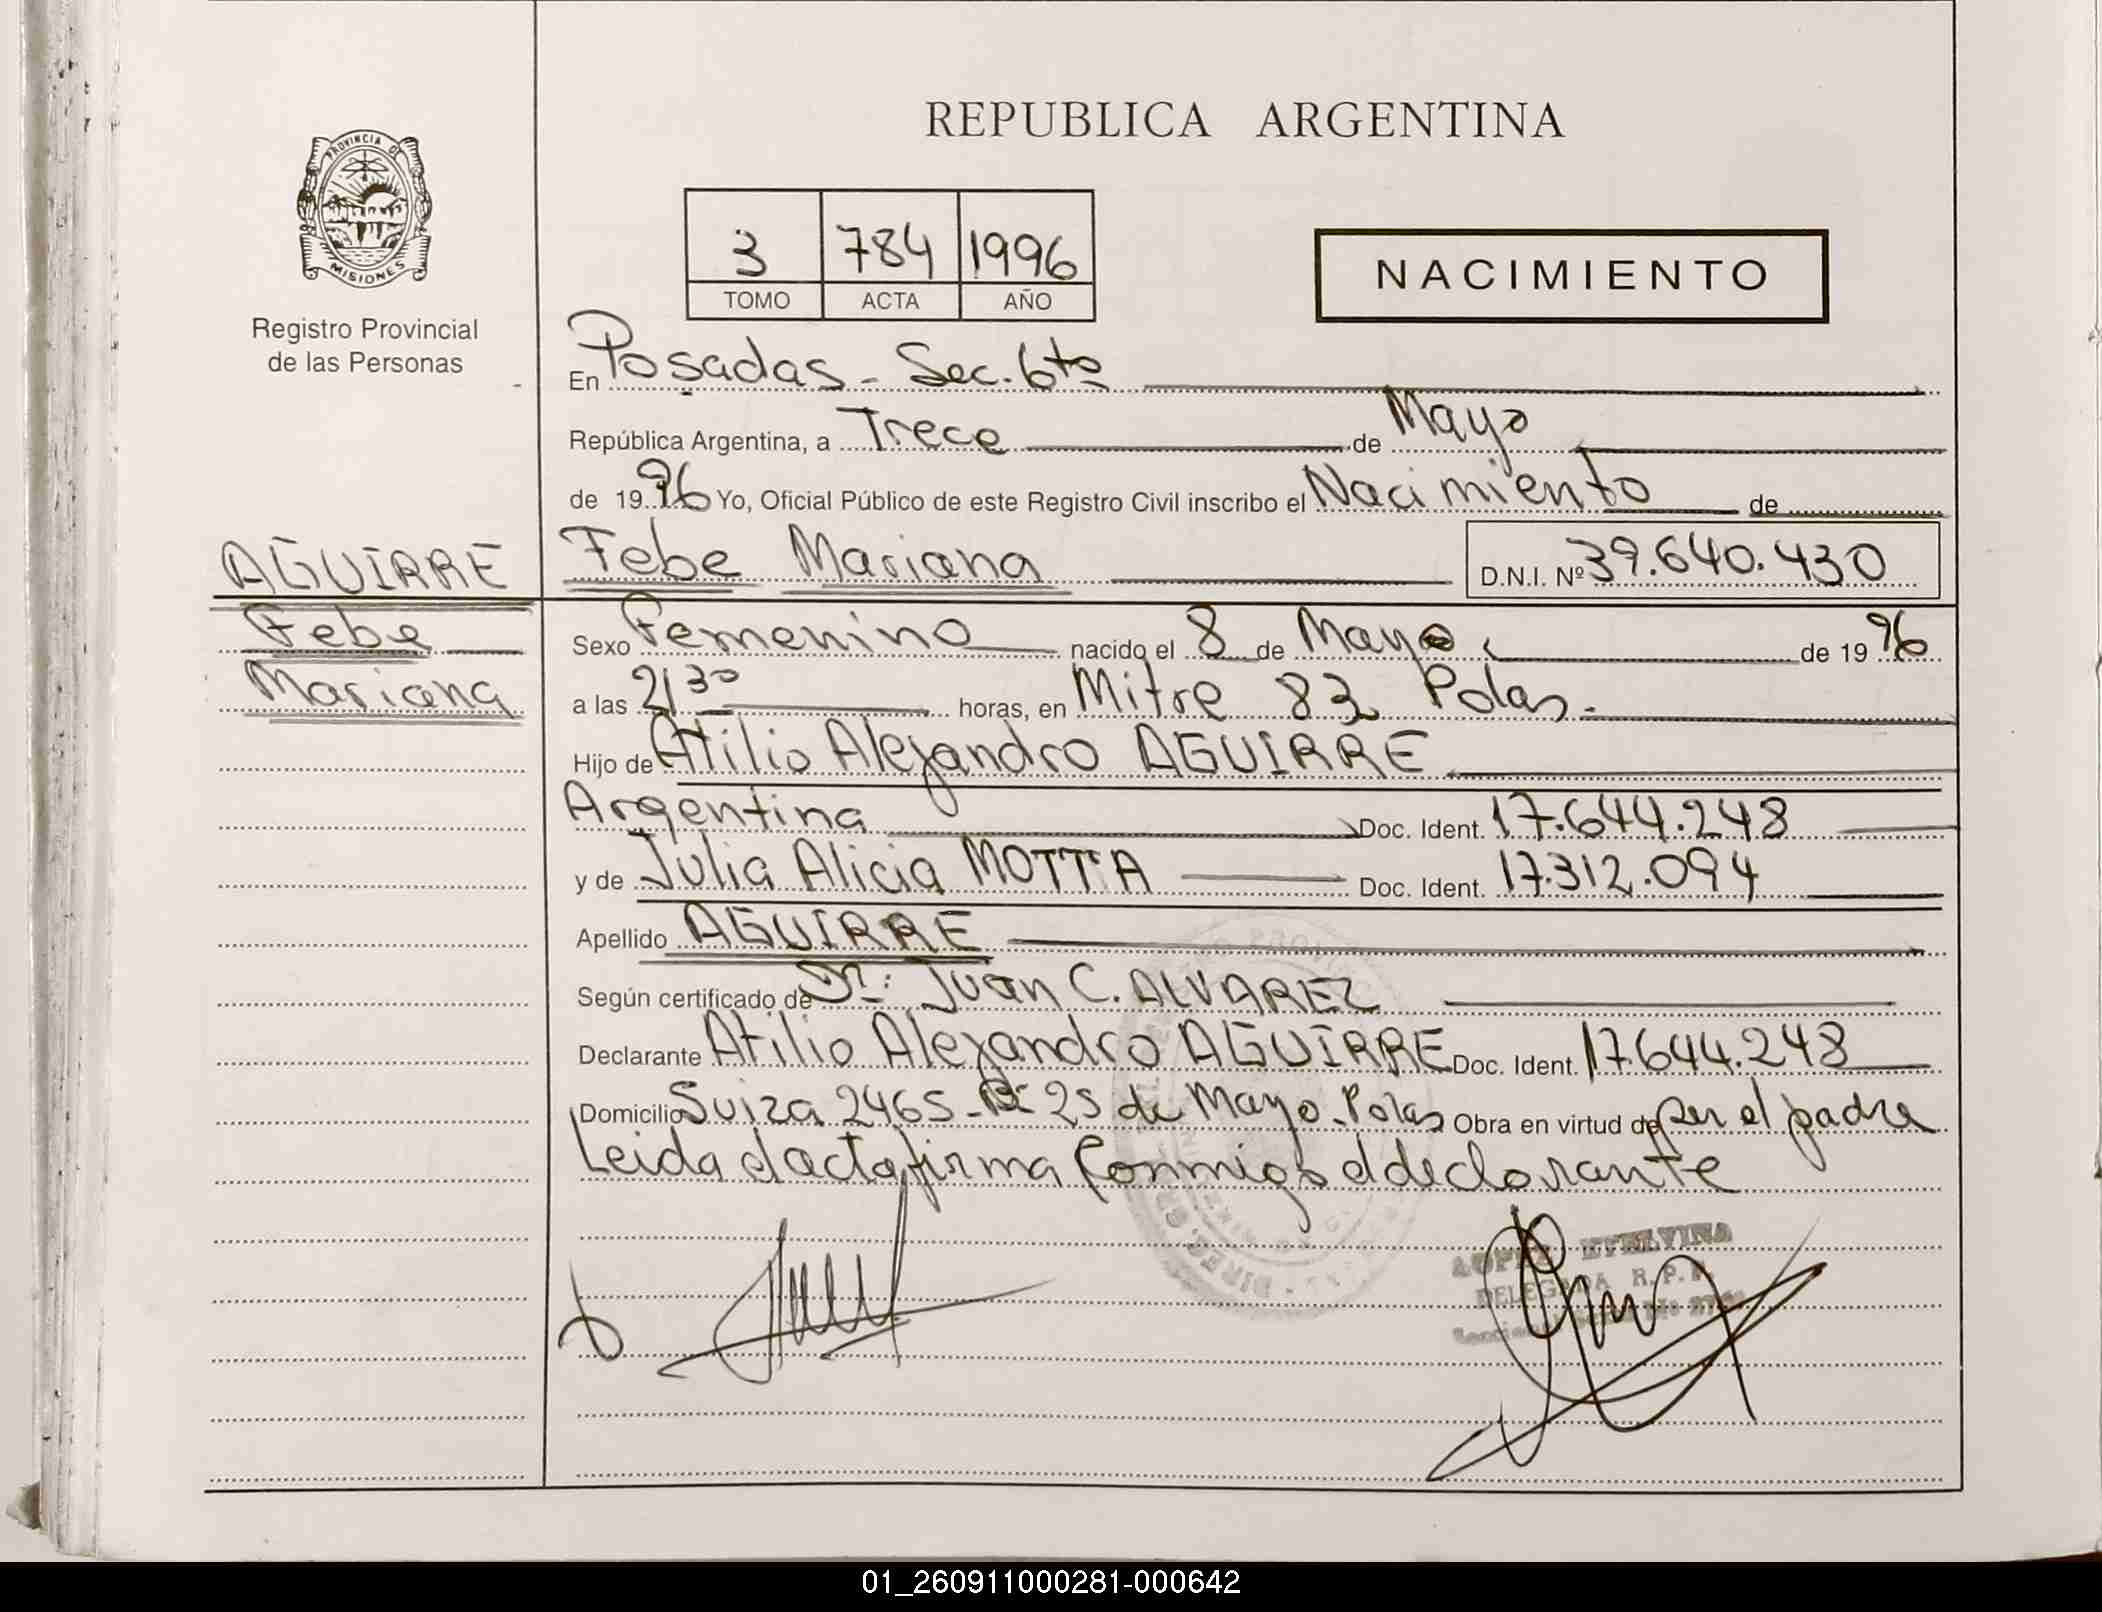 REPUBLICA ARGENTINA
PROVINCIA DE MISIONES
Registro Provincial
de las Personas
3 784 1996
TOMO ACTA AÑO
NACIMIENTO
En Posadas - Sec. 6ta
República Argentina, a Trece de Mayo
de 1996 Yo, Oficial Público de este Registro Civil inscribo el Nacimiento de
AGUIRRE
Febe
Mariana
Febe Mariana D.N.I. Nº 39.640.430
Sexo Femenino nacido el 8 de Mayo de 1996
a las 21 30 horas, en Mitre 83 Pdas.
Hijo de Atilio Alejandro AGUIRRE
Argentina Doc. Ident. 17.644.248
y de Julia Alicia MOTTA Doc. Ident. 17.312.094
Apellido AGUIRRE
Según certificado de Dr: Juan C. ALVAREZ
Declarante Atilio Alejandro AGUIRRE Doc. Ident. 17.644.248
Domicilio Suiza 2465 - Bº 25 de Mayo - Pdas Obra en virtud de ser el padre
Leida el acta firma conmigo el declarante
ETELVINA
DELEGADA R.P.P.
01_260911000281-000642